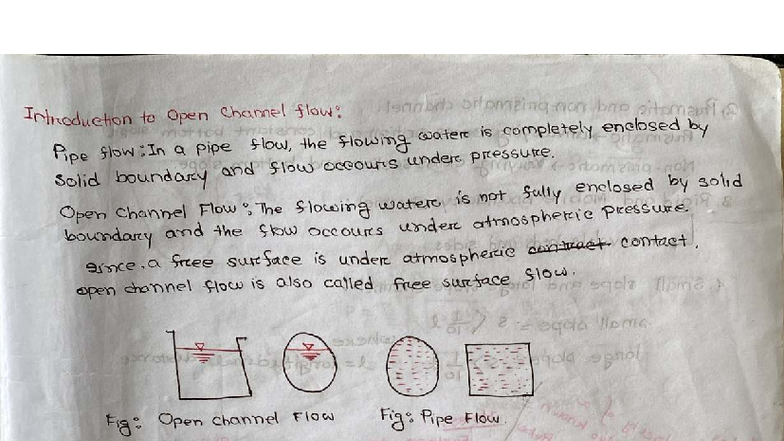 Introduction to Open Channel flow:
Pipe flow: In a pipe flow, the flowing water is completely enclosed by
Solid boundary and flow occours under pressure.
Open Channel Flow: The flowing water is not fully enclosed by solid
boundary and the flow occours under atmospheric pressure.
since, a free surface is under atmospheric contract contact.
open channel flow is also called free surface flow.
Fig: Open channel Flow Fig: Pipe Flow.